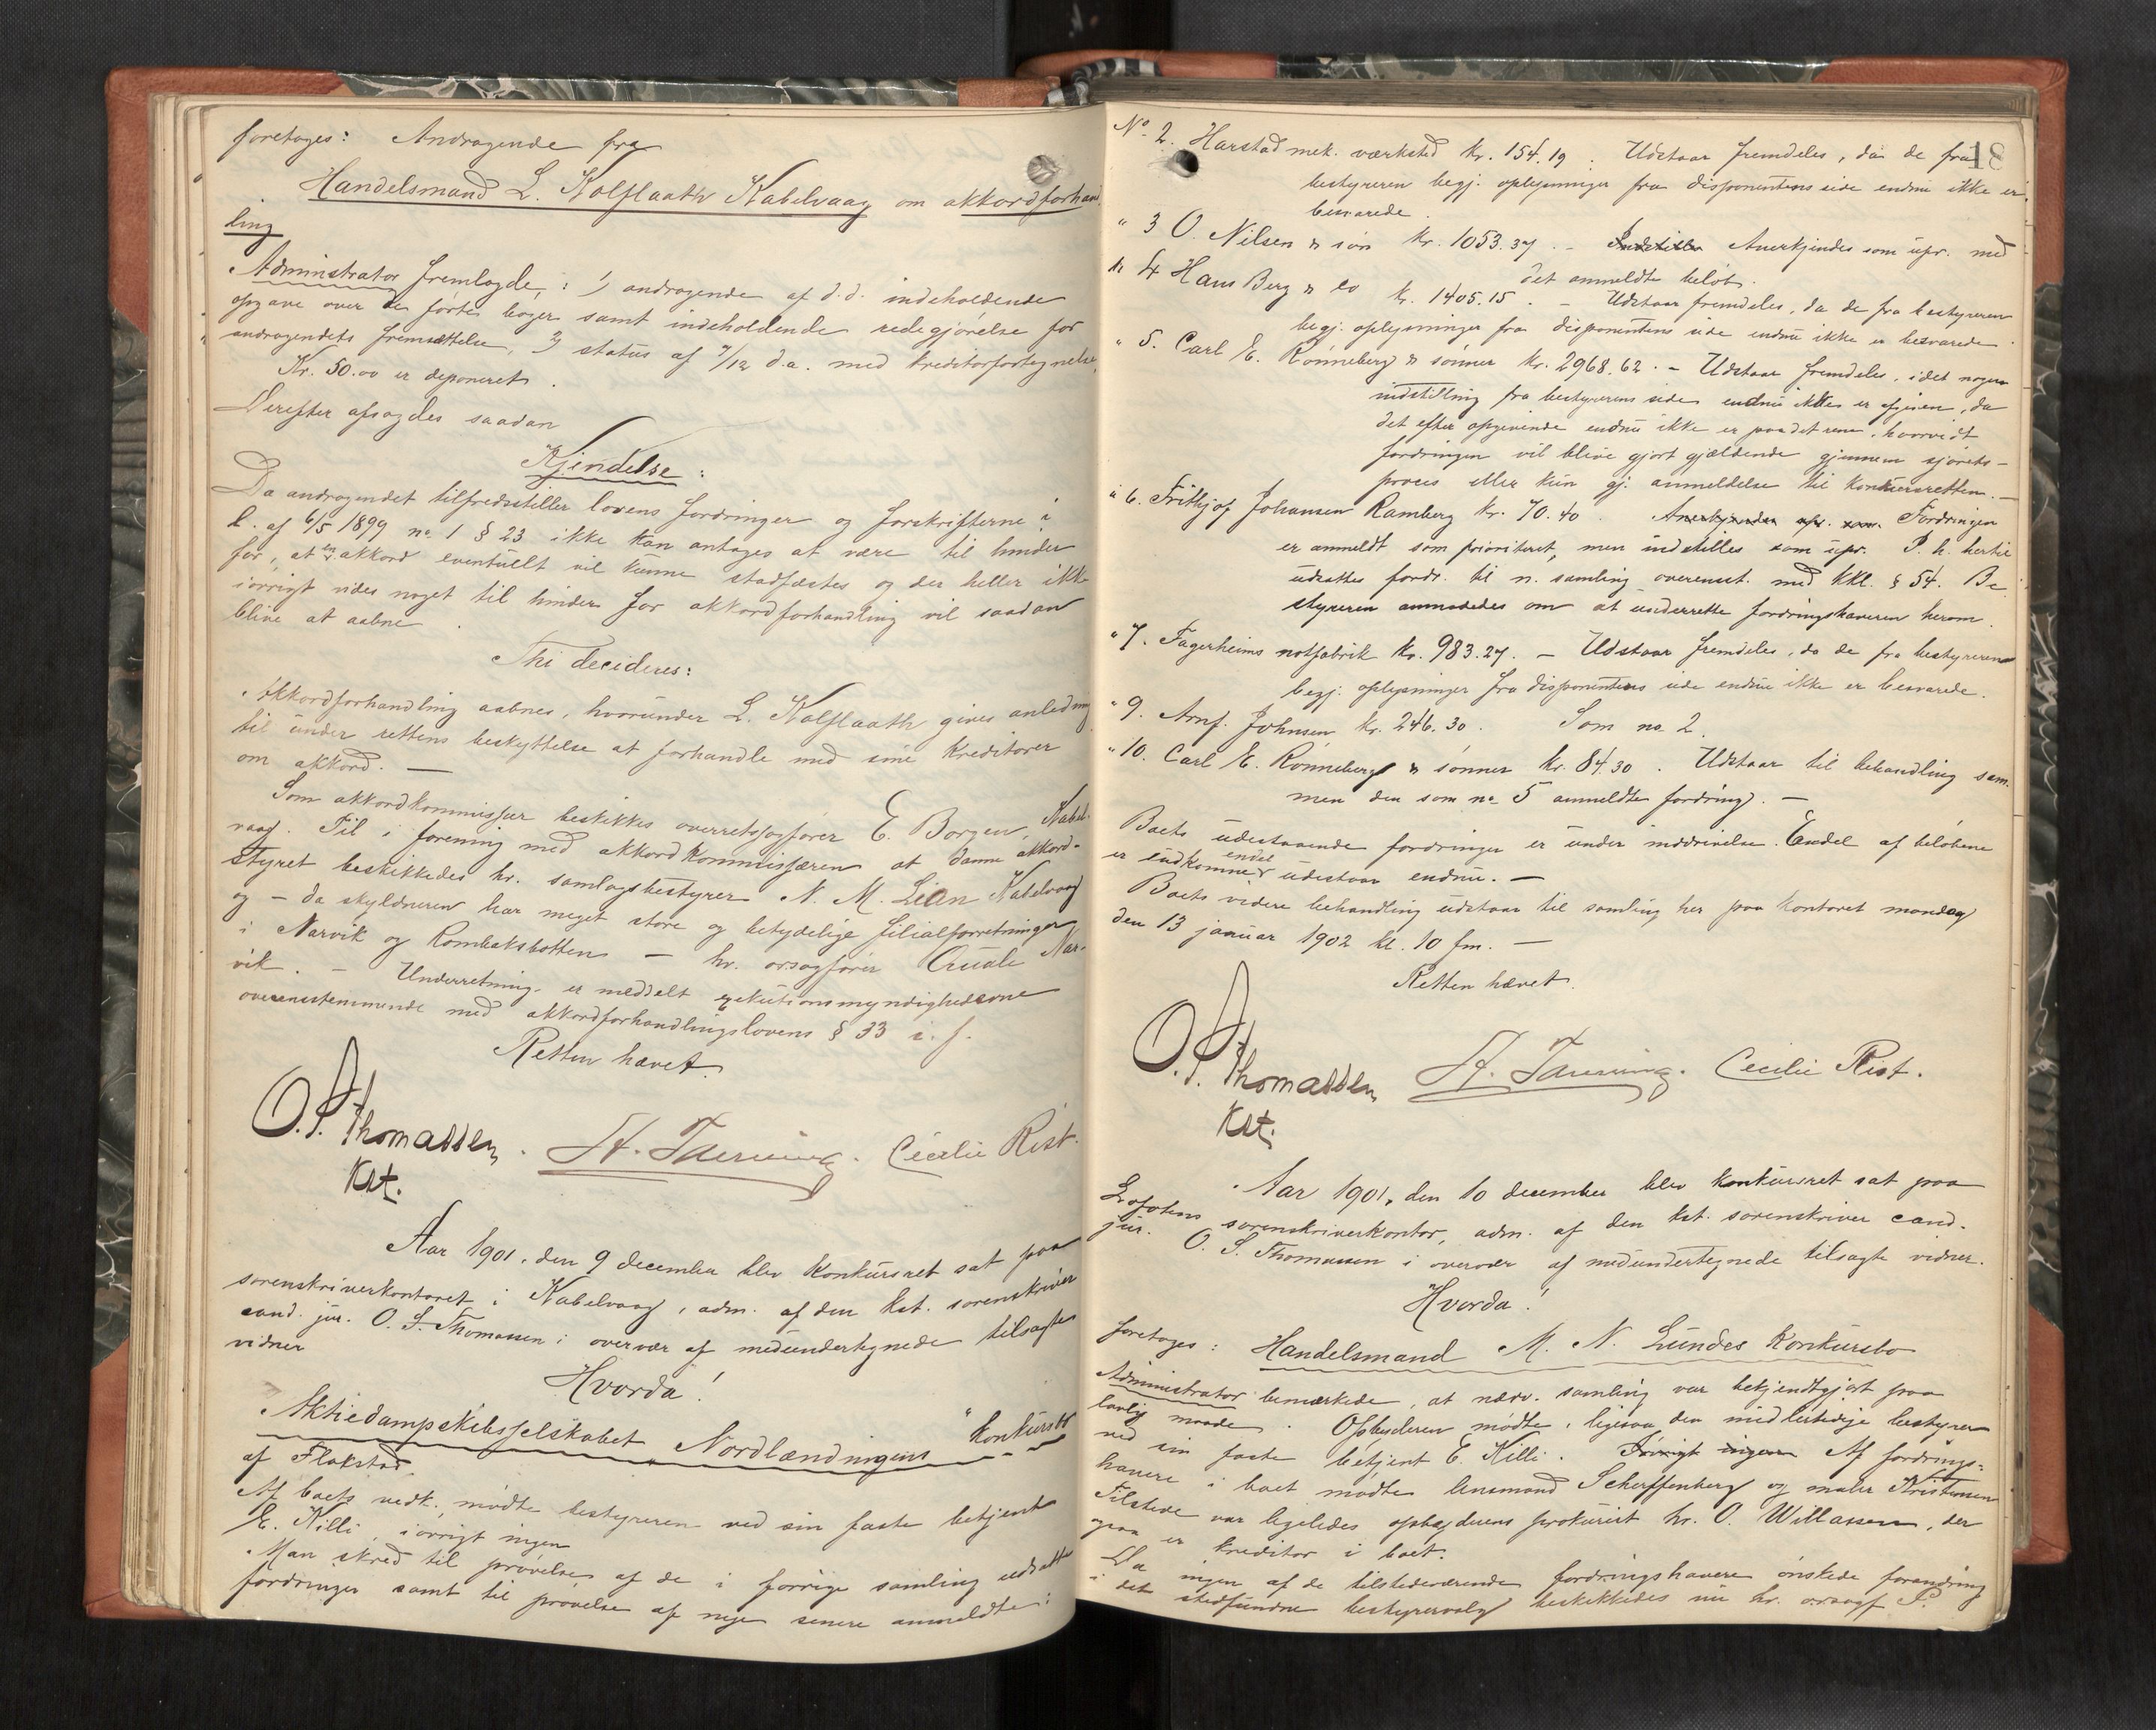 foretoges: Andragende fra
Handelsmand L. Kolflaath Kabelvaag om akkordforhand
ling
Administrator fremlagde: 1) andragende af d.d. indeholdende
opgave over de førte bøger samt indeholdende redegjørelse for
andragendets fremsættelse, 2) status af 7/12 d.a. med kreditorfortegnelse,
Kr. 50.00 er deponeret.
Derefter afsagdes saadan
Kjendelse:
Da andragendet tilfredsstiller lovens fordringer og forskrifterne i
l. af 6/5 1899 no 1 § 23 ikke kan antages at være til hinder
for, at en akkord eventuelt vil kunne stadfæstes og der heller ikke
iøvrigt vides noget til hinder for akkordforhandling vil saadan
blive at aabne.
Thi decideres:
Akkordforhandling aabnes, hvorunder L. Kolflaath gives anledning
til under rettens beskyttelse at forhandle med sine kreditorer
om akkord. —
Som akkordkommissær beskikkes overretssagfører E. Borgen, Kabel-
vaag. Til i forening med akkordkommissæren at danne akkord-
styret beskikkedes hr. samlagsbestyrer N. M. Lian Kabelvaag
og – da skyldneren har meget store og betydelige filialforretninger
i Narvik og Rombaksbotten – hr. orsagfører Quale Nar-
vik. – Underretning er meddelt exekutionsmyndighederne
overensstemmende med akkordforhandlingslovens § 33 i. f.
Retten hævet.
O. S. Thomassen. H. Tønning. Cecilie Rist.
Kst.
Aar 1901, den 9 december blev konkursret sat paa
sorenskriverkontoret i Kabelvaag, adm. af den kst. sorenskriver
cand. jur. O. S. Thomassen i overvær af medundertegnede tilsagte
vidner
Hvorda!
Aktiedampskibsselskabet „Nordlændingens" konkursbo
af Flakstad
Af boets vedk. mødte bestyreren ved sin faste betjent
E. Killi, iøvrigt ingen
Man skred til prøvelse af de i forrige samling udsatte
fordringer samt til prøvelse af nye senere anmeldte:
18
No. 2. Harstad mek. værksted kr. 154.19. Udstaar fremdeles, da de fra
bestyreren begj. oplysninger fra disponentens side endnu ikke er
besvarede.
" 3 O. Nilsen & søn kr. 1053.37. – Indstilles Anerkjendes som upr. med
det anmeldte beløb.
" 4 Hans Berg & co kr. 1405.15. – Udstaar fremdeles, da de fra bestyreren
begj. oplysninger fra disponentens side endnu ikke er besvarede.
" 5. Carl E. Rønneberg & sønner kr. 2968.62. – Udstaar fremdeles, idet nogen
indstilling fra bestyrerens side endnu ikke er afgiven, da
det efter opgivende endnu ikke er paa det rene, hvorvidt
fordringen vil blive gjort gjældende gjennem sjørets-
proces eller kun gj. anmeldelse til konkursretten. —
" 6. Frithjof Johansen Ramberg kr. 70.40. Anerkjendes upr. som. Fordringen
er anmeldt som prioriteret, men indstilles som upr. P. h. hertil
udsattes fordr. til n. samling overensst. med kkl. § 54. Be
styreren anmodedes om at underrette fordringshaveren herom.
" 7. Fagerheims notfabrik kr. 983.27. – Udstaar fremdeles, da de fra bestyreren
begj. oplysninger fra disponentens side endnu ikke er besvarede.
" 9. Arnf. Johnsen kr. 246.30. Som no 2.
" 10. Carl E. Rønneberg & sønner kr. 84.30. Udstaar til behandling sam-
men den som no 5 anmeldte fordring. —
Boets udestaaende fordringer er under inddrivelse. Endel af beløbene
er indkomne, endel udestaar endnu. —
Boets videre behandling udstaar til samling her paa kontoret mandag
den 13 januar 1902 kl. 10 fm. —
Retten hævet.
O. S. Thomassen H. Tønning. Cecilie Rist.
Kst.
Aar 1901, den 10 december blev konkursret sat paa
Lofotens sorenskriverkontor, adm. af den kst. sorenskriver cand.
jur. O. S. Thomassen i overvær af medundertegnede tilsagte vidner.
Hvorda!
foretoges: Handelsmand M. N. Lundes konkursbo
Administrator bemærkede, at nærv. samling var bekjendtgjort paa
lovlig maade. Opbyderen mødte, ligesaa den midlertidige bestyrer
ved sin faste betjent E. Killi. Iøvrigt ingen Af fordrings-
havere i boet mødte lensmand Scherffenberg og maler Kristensen
Tilstede var ligeledes opbyderens prokurist hr. O. Willassen, der
ogsaa er kreditor i boet.
Da ingen af de tilstedeværende fordringshavere ønskede forandring
i det stedfundne bestyrervalg beskikkedes nu hr. orsagf. P.